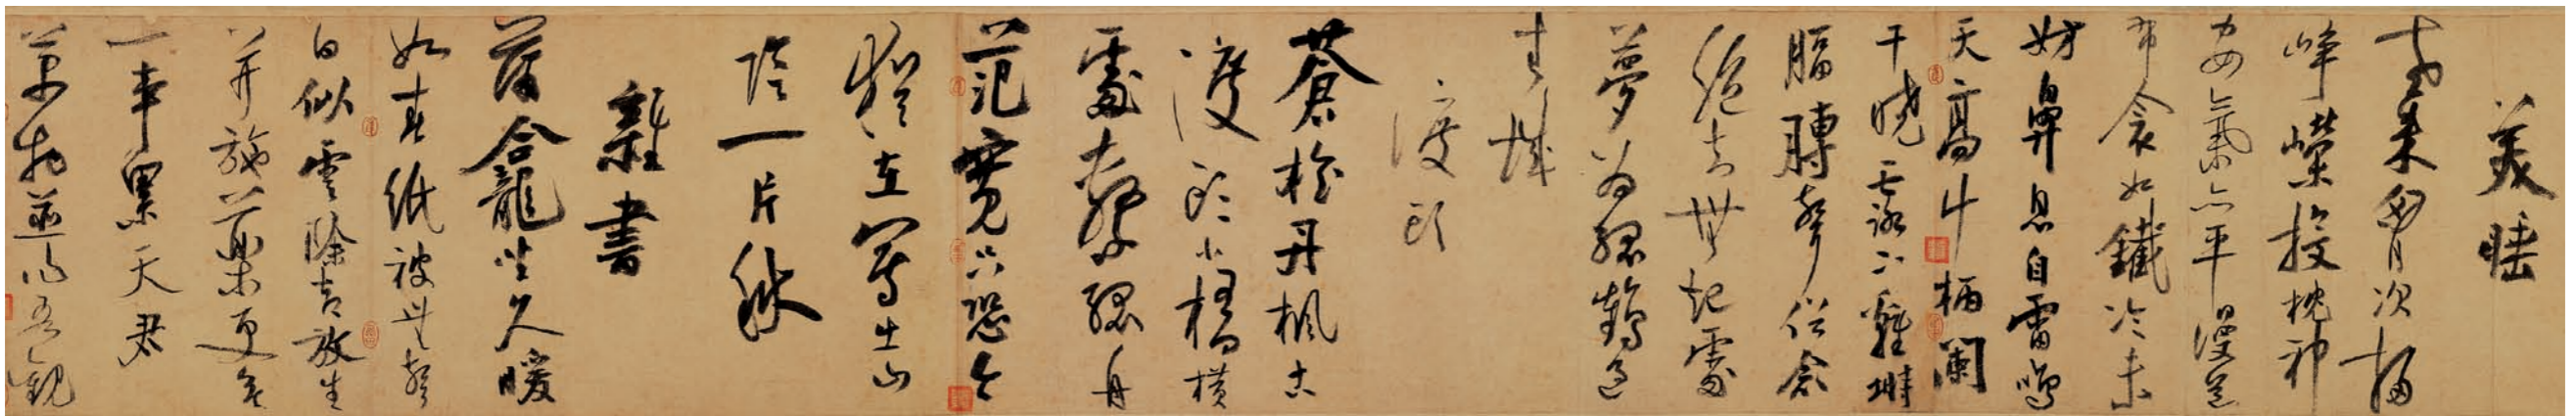 美睡
老来胷次掃
峥嶸投枕神
安氣亦平漫道
布衾如鐵冷未
妨鼻息自雷鳴
天高斗柄闌
干曉露下雞塒
腷膊聲俗念
絶知無起處
夢為孤鶴過
青城
渡頭
蒼檜丹楓古
渡頭小橋橫
處繫孤舟
范寬只恐今
猶在寫出山
陰一片秋
雜書
蒲龕坐久暖
如春紙被無聲
白似雲除却放生
并施藥更無
一事累天君
萬物並作吾觀